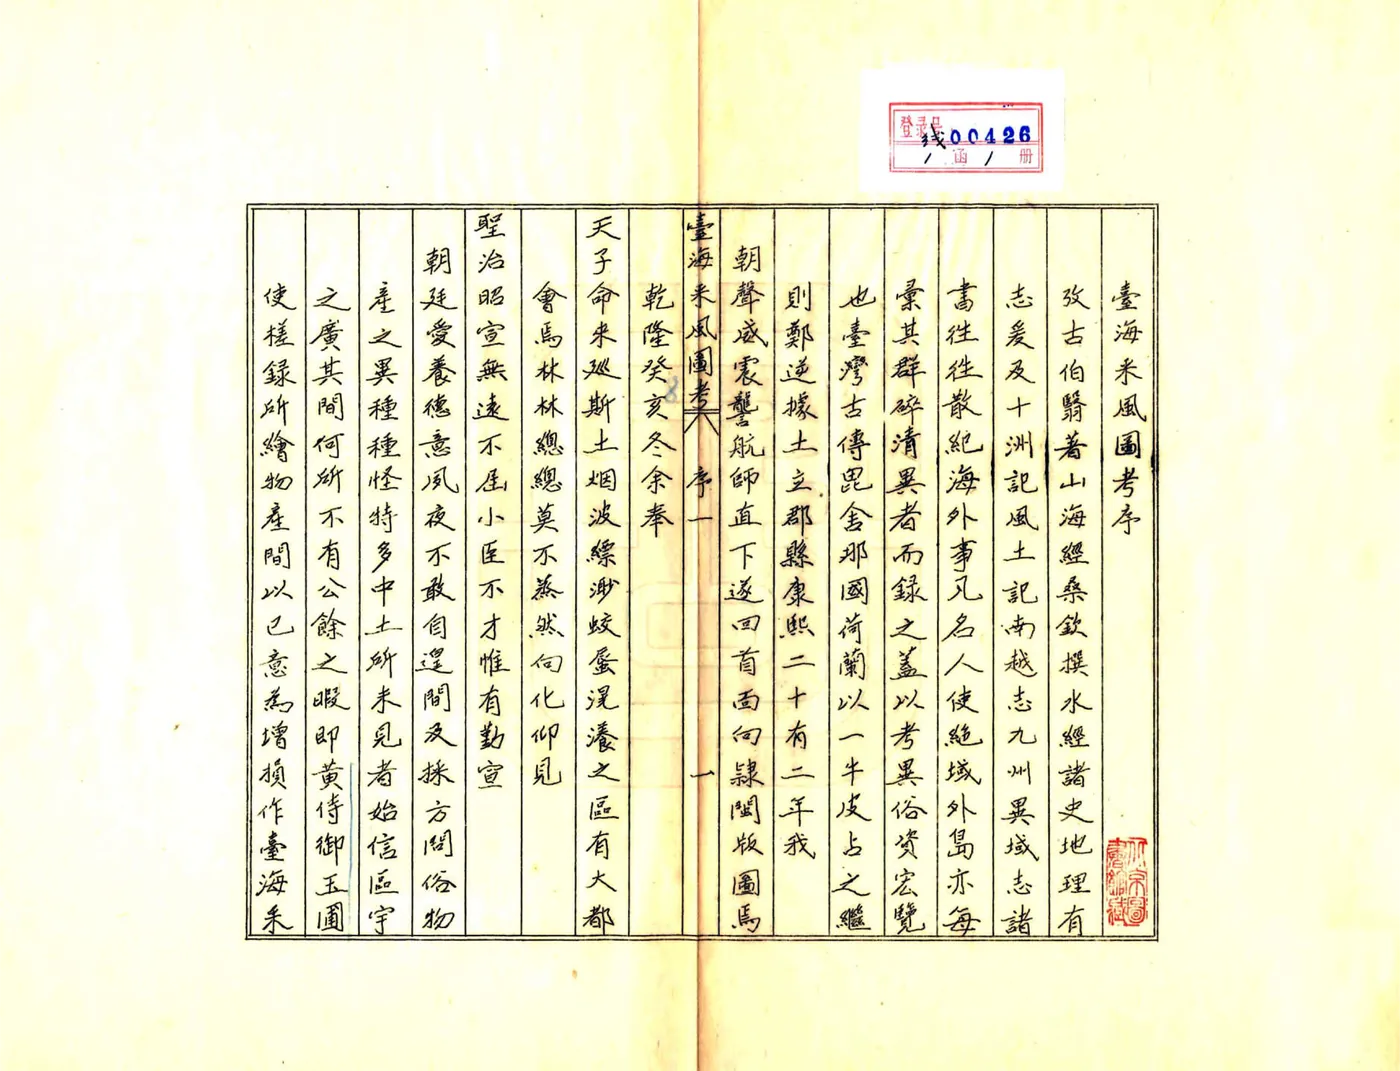 登录号 线00426
1 函 1 册
臺海采風圖考序
攷古伯翳著山海經桑欽撰水經諸史地理有
志爰及十洲記風土記南越志九州異域志諸
書往往散紀海外事凡名人使絕域外島亦每
彙其群碎清異者而錄之蓋以考異俗資宏覽
也臺灣古傳毘舍耶國荷蘭以一牛皮占之繼
則鄭逆據土立郡縣康熙二十有二年我
朝聲威震讋航師直下遂回首面向隷閩版圖焉
臺海采風圖考 序一 一
乾隆癸亥冬余奉
天子命來廵斯土烟波縹渺蛟蜃滉瀁之區有大都
會焉林林總總莫不蒸然向化仰見
聖治昭宣無遠不屆小臣不才惟有勤宣
朝廷愛養德意夙夜不敢自遑間及採方問俗物
產之異種種怪特多中土所未見者始信區宇
之廣其間何所不有公餘之暇即黃侍御玉圃
使槎録所繪物產間以己意為增損作臺海采